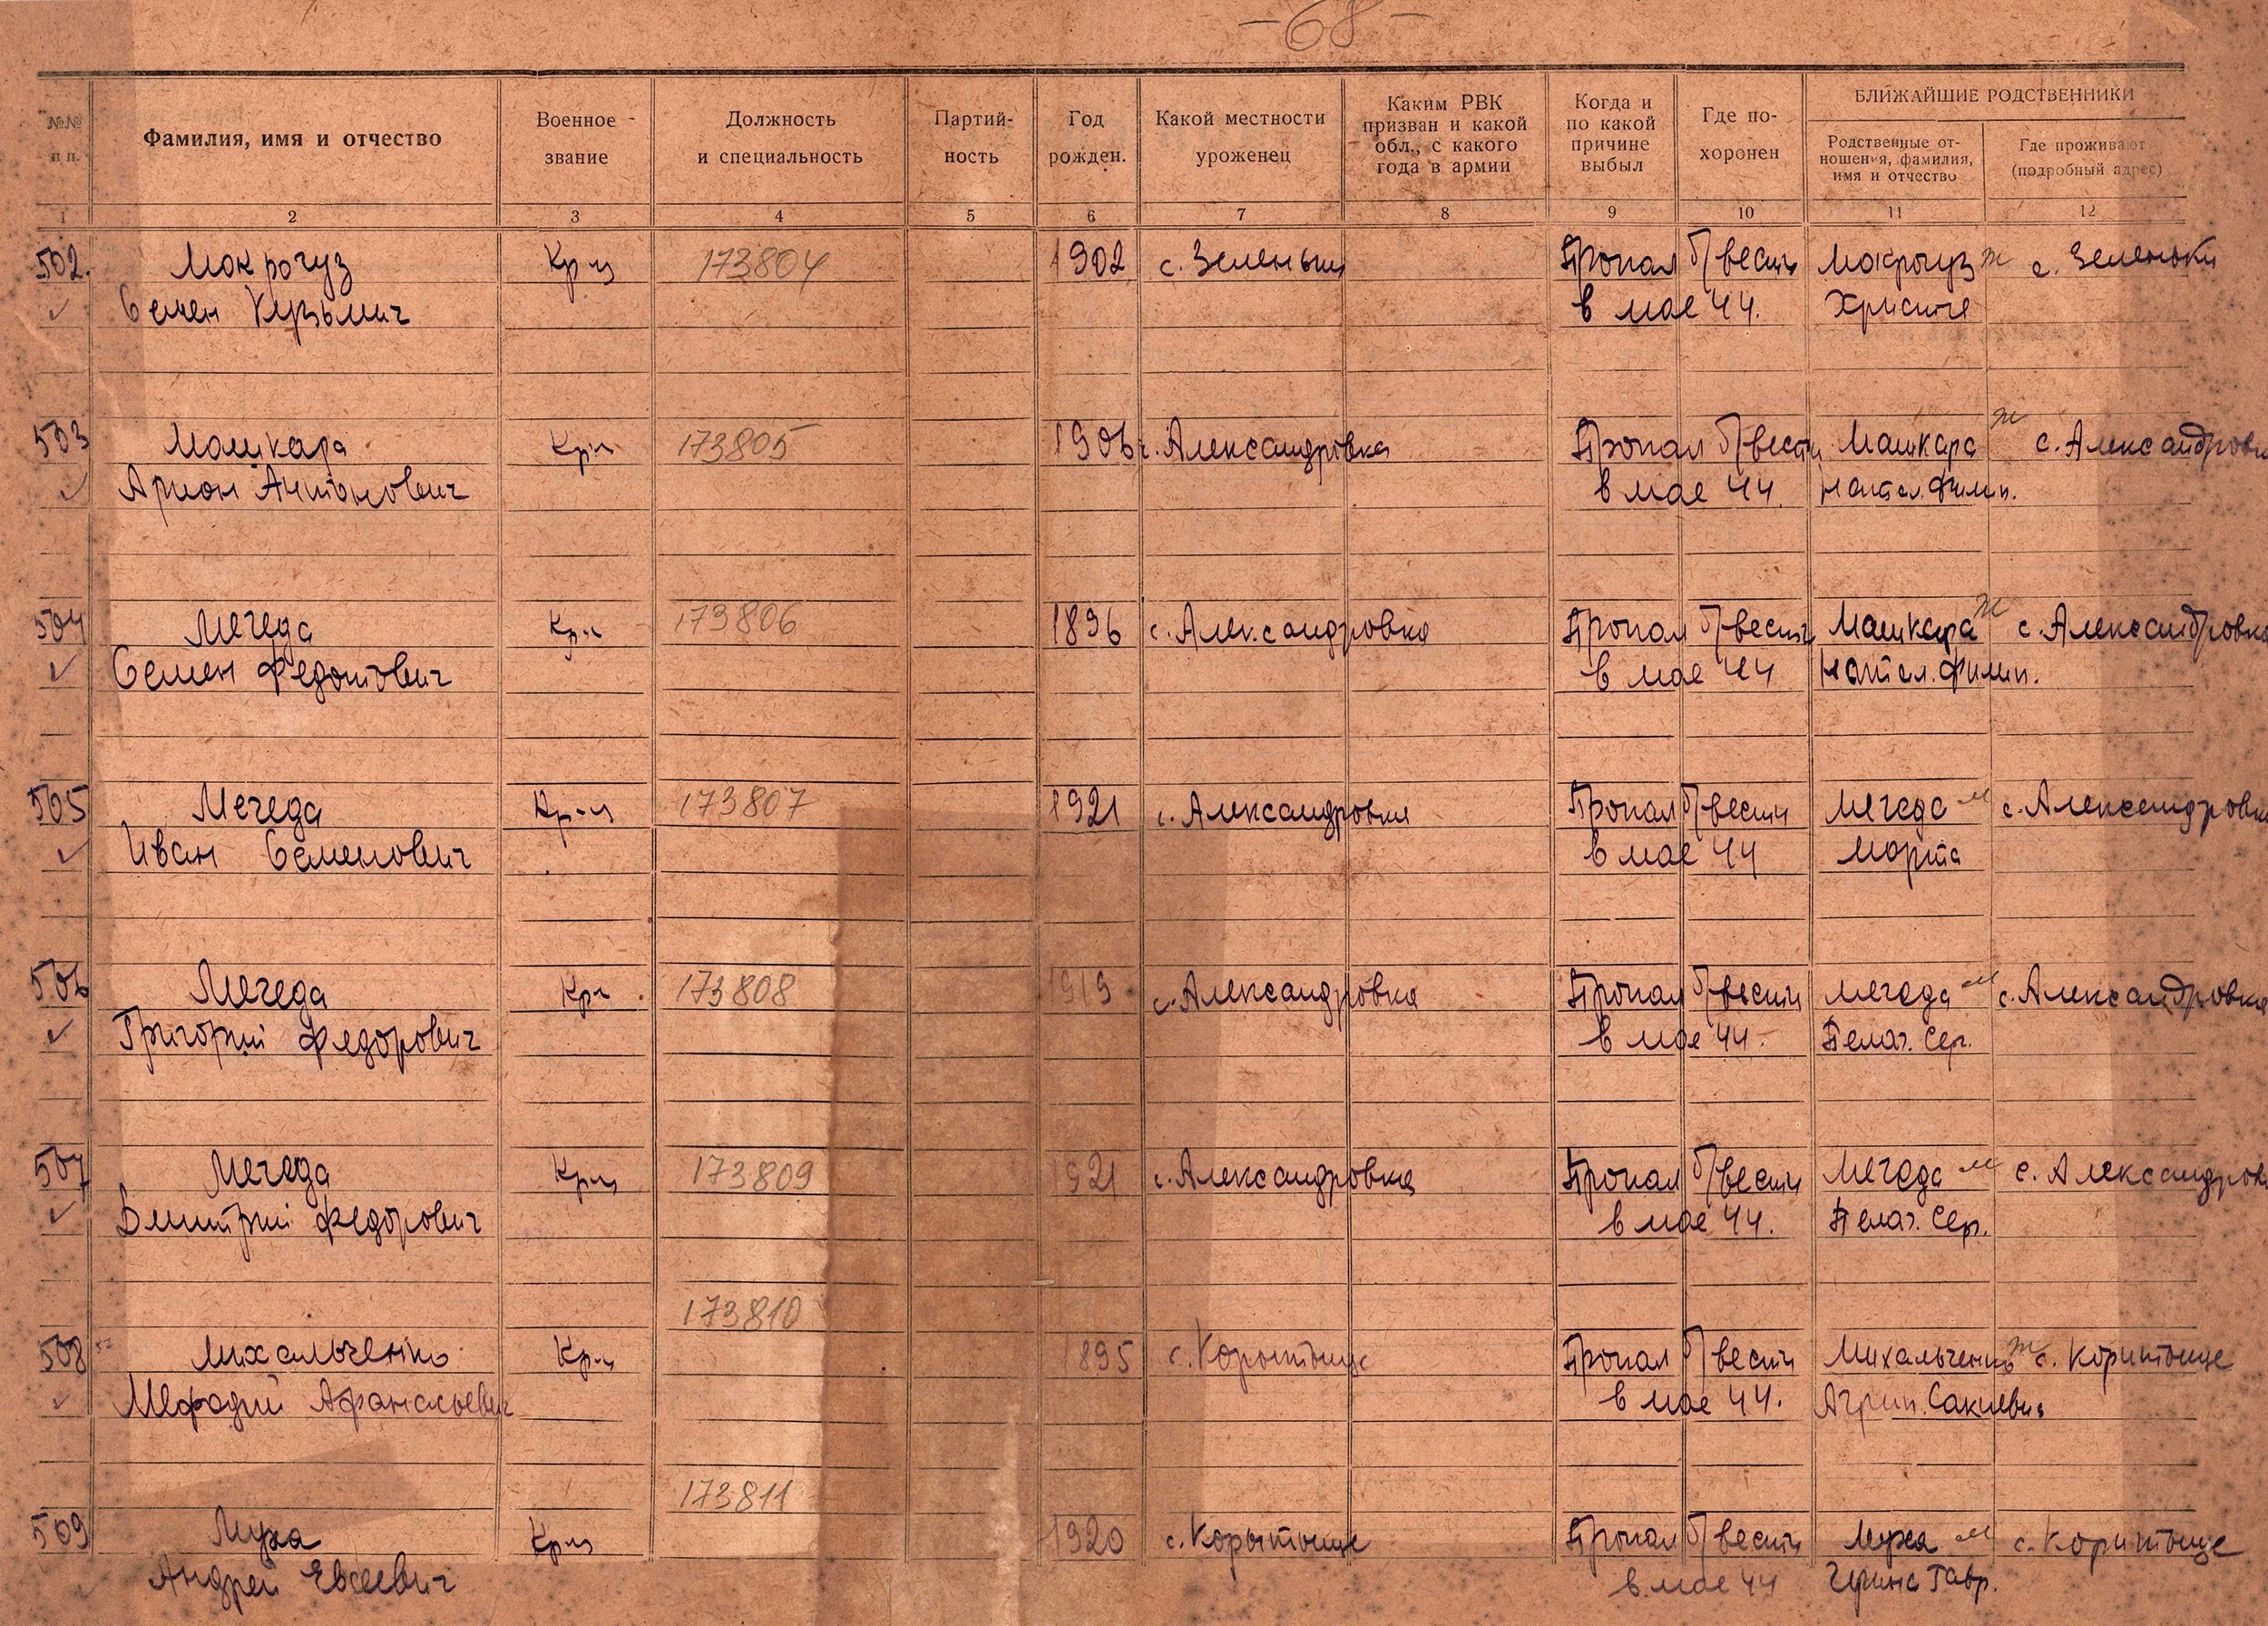 -68-
№№ п п.
Фамилия, имя и отчество
Военное звание
Должность и специальность
Партийность
Год рожден.
Какой местности уроженец
Каким РВК призван и какой обл., с какого года в армии
Когда и по какой причине выбыл
Где похоронен
БЛИЖАЙШИЕ РОДСТВЕННИКИ
Родственные отношения, фамилия, имя и отчество
Где проживают (подробный адрес)
1 2 3 4 5 6 7 8 9 10 11 12
502. Мокрогуз Кр-ц 173804 1902 с. Зеленьки Пропал б/вести Мокрогуз ж с. Зеленьки
Семен Кузьмич в мае 44. Христя
503 Машкара Кр-ц 173805 1906 с. Александровка Пропал б/вести Машкара ж с. Александровка
Арион Антонович в мае 44. Натал. Филип.
504 Мегеда Кр-ц 173806 1896 с. Александровка Пропал б/вести Машкара ж с. Александровка
Семен Федотович в мае 44 Натал. Филип.
505 Мегеда Кр-ц 173807 1921 с. Александровка Пропал б/вести Мегеда м с. Александровка
Иван Семенович в мае 44 Марта
506 Мегеда Кр-ц 173808 1919 с. Александровка Пропал б/вести Мегеда м с. Александровка
Григорий Федорович в мае 44. Пелаг. Сер.
507 Мегеда Кр-ц 173809 1921 с. Александровка Пропал б/вести Мегеда м с. Александровка
Дмитрий Федорович в мае 44. Пелаг. Сер.
173810
508 Михальченко Кр-ц 1895 с. Корытище Пропал б/вести Михальченко ж с. Коритище
Мефодий Афанасьевич в мае 44. Агрип.
173811
509 Муха Кр-ц 1920 с. Корытище Пропал б/вести Муха м с. Коритище
Андрей Евсеевич в мае 44 Гавр.